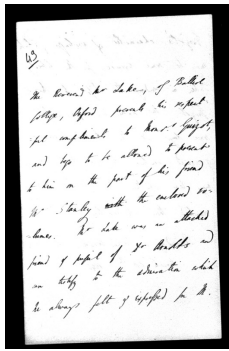 43
The Reverend Mr Lake, of Balliol
College, Oxford presents his respect-
ful compliments to Monsr Guizot,
and begs to be allowed to present
to him on the part of his friend
Mr Stanley with the enclosed vo-
lumes. Mr Lake was an attached
friend & pupil of Dr Arnold's and
can testify to the admiration which
he always felt & expressed for M.